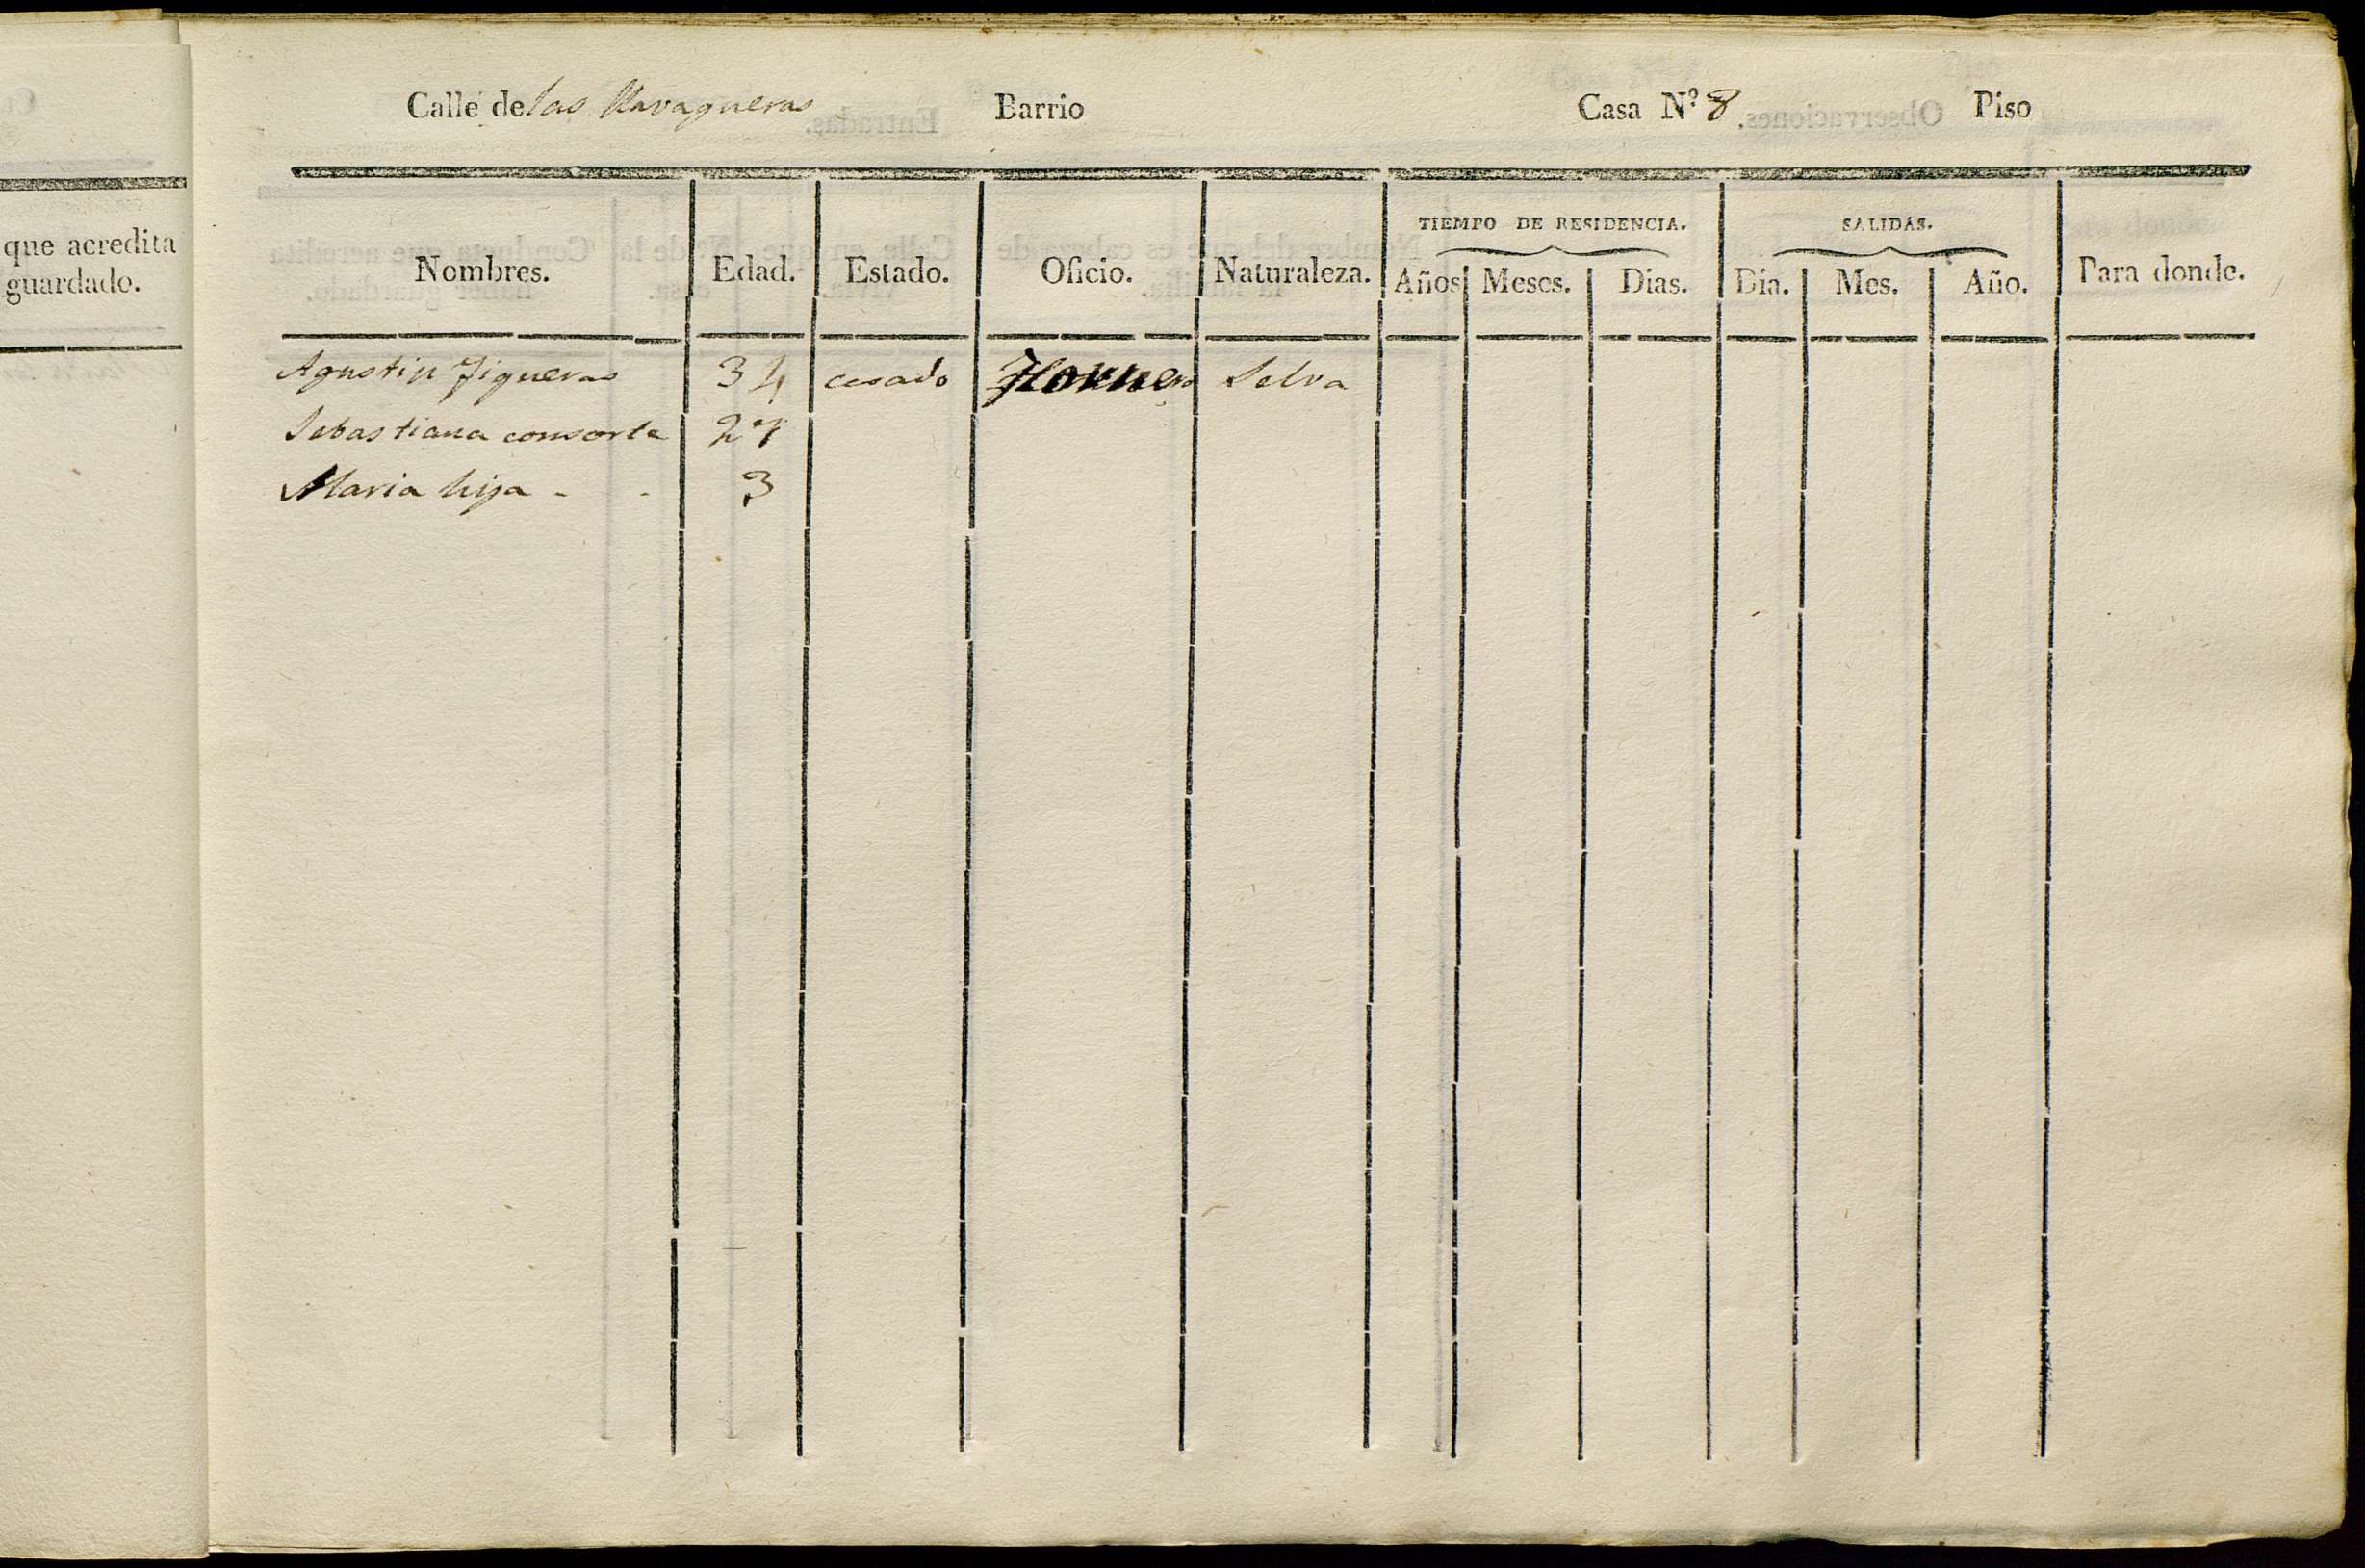 que acredita
guardado.
Calle de las Barrio Casa N.º 8 Piso
Nombres. Edad. Estado. Oficio. Naturaleza. TIEMPO DE RESIDENCIA. SALIDAS. Para donde.
Años Meses. Dias. Dia. Mes. Año.
Agustin Figueras 34 casado Hornero Selva
Sebastiana consorte 27
Maria hija - - 3